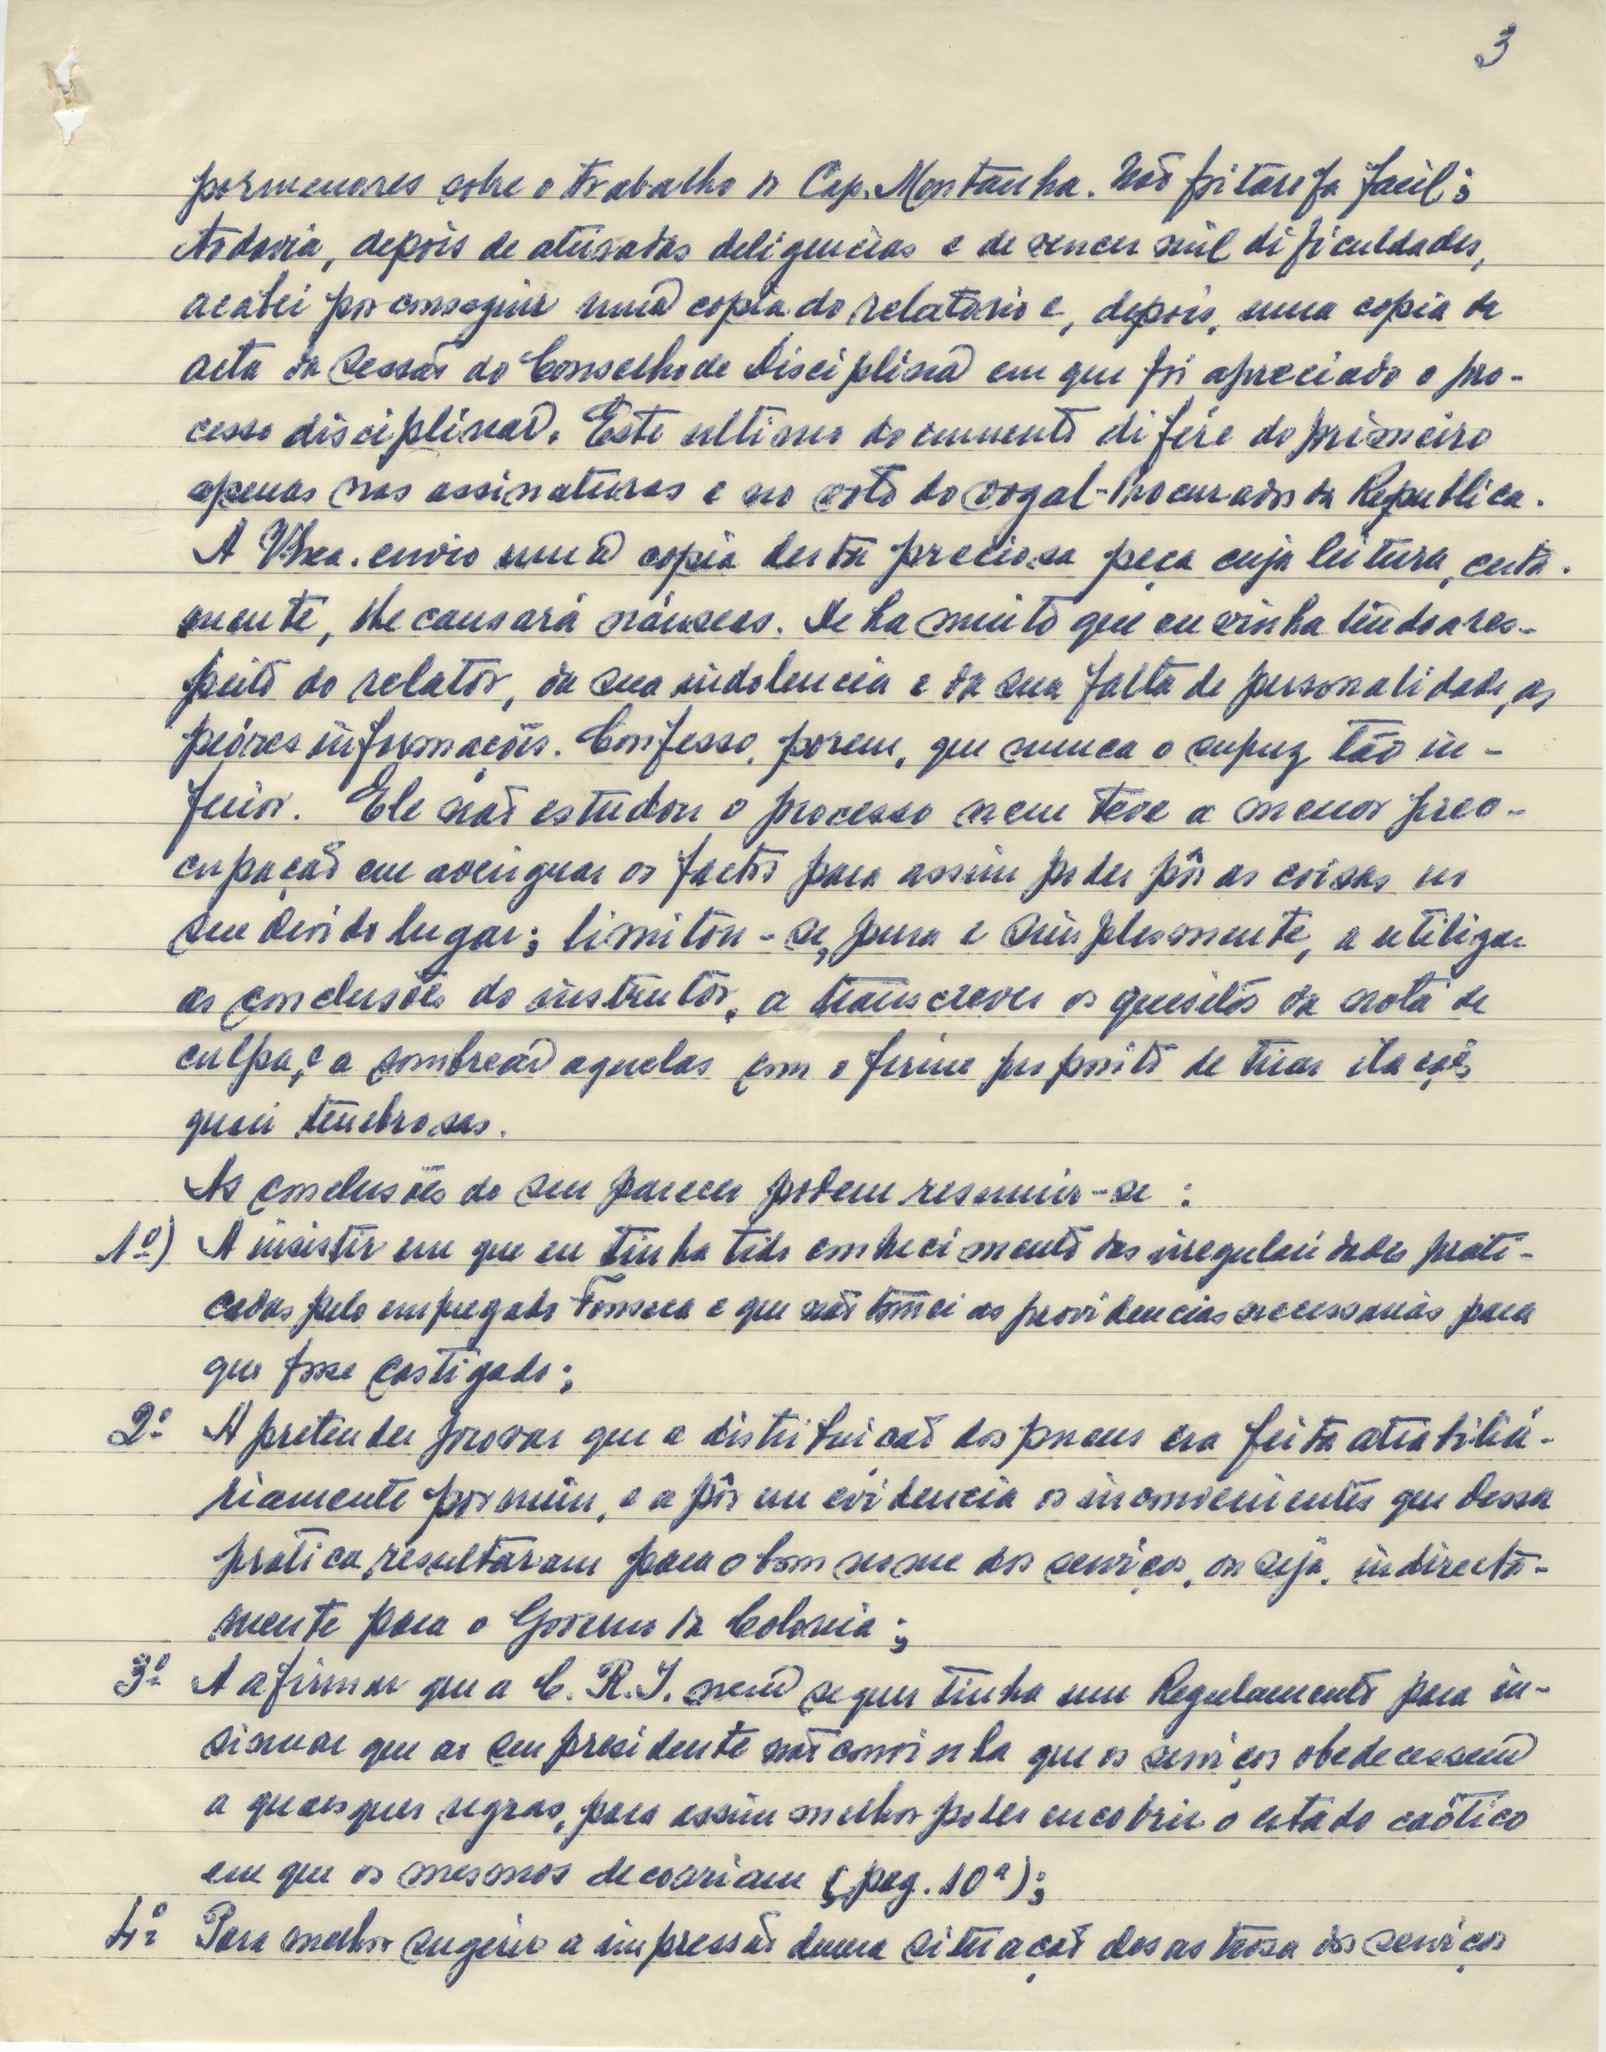 3
pormenores sobre o trabalho do Cap. Montanha. Não foi tarefa facil;
todavia, depois de aturadas deligencias e de vencer mil dificuldades,
acabei por conseguir uma copia do relatorio e, depois, uma copia da
acta da sessão do Conselho de Disciplina em que foi apreciado o pro-
cesso disciplinar. Este ultimo documento difére do primeiro
apenas nas assinaturas e no voto do vogal-Procurador da Republica.
A V. Exa. envio uma copia desta preciosa peça cuja leitura, certa-
mente, lhe causará náuseas. De ha muito que eu vinha tendo a res-
peito do relator, da sua indolencia e da sua falta de personalidade, as
peóres informações. Confesso, porem, que nunca o supuz tão in-
ferior. Ele não estudou o processo nem teve a menor preo-
cupação em averiguar os factos para assim poder pôr as coisas no
seu devido lugar; limitou-se, pura e simplesmente, a utilizar
as conclusões do instrutor, a transcrever os quesitos da nota de
culpa, e a sombrear aquelas com o firme proposito de tirar ilações
quasi tenebrosas.
As conclusões do seu parecer podem resumir-se:
1º) A insistir em que eu tinha tido conhecimento das irregularidades prati-
cadas pelo empregado Fonseca e que não tomei as providencias necessarias para
que fosse castigado;
2º A pretender provar que a distribuição dos pneus era feita atrabiliá-
riamente por mim, e a pôr em evidencia os inconvenientes que dessa
pratica, resultaram para o bom nome dos serviços, ou seja, indirecta-
mente para o Governo da Colonia;
3º A afirmar que a C. R. I. nem sequer tinha um Regulamento para in-
sinuar que ao seu presidente não convinha que os serviços obedecessem
a quaesquer regras, para assim melhor poder encobrir o estado caótico
em que os mesmos decorriam (pag. 10ª);
4º Para melhor sugerir a impressão duma situação desastrosa dos serviços